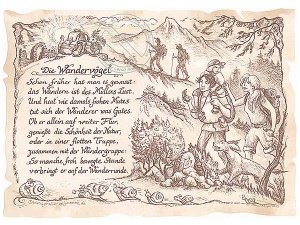 Die Wandervögel
Schon früher hat man es gewusst
das Wandern ist des Müllers Lust.
Und heut wie damals frohen Mutes
tut sich der Wanderer was Gutes.
Ob er allein auf weiter Flur,
genießt die Schönheit der Natur,
oder in einer flotten Truppe,
zusammen mit der Wandergruppe:
So manche froh bewegte Stunde
verbringt er auf der Wanderrunde.